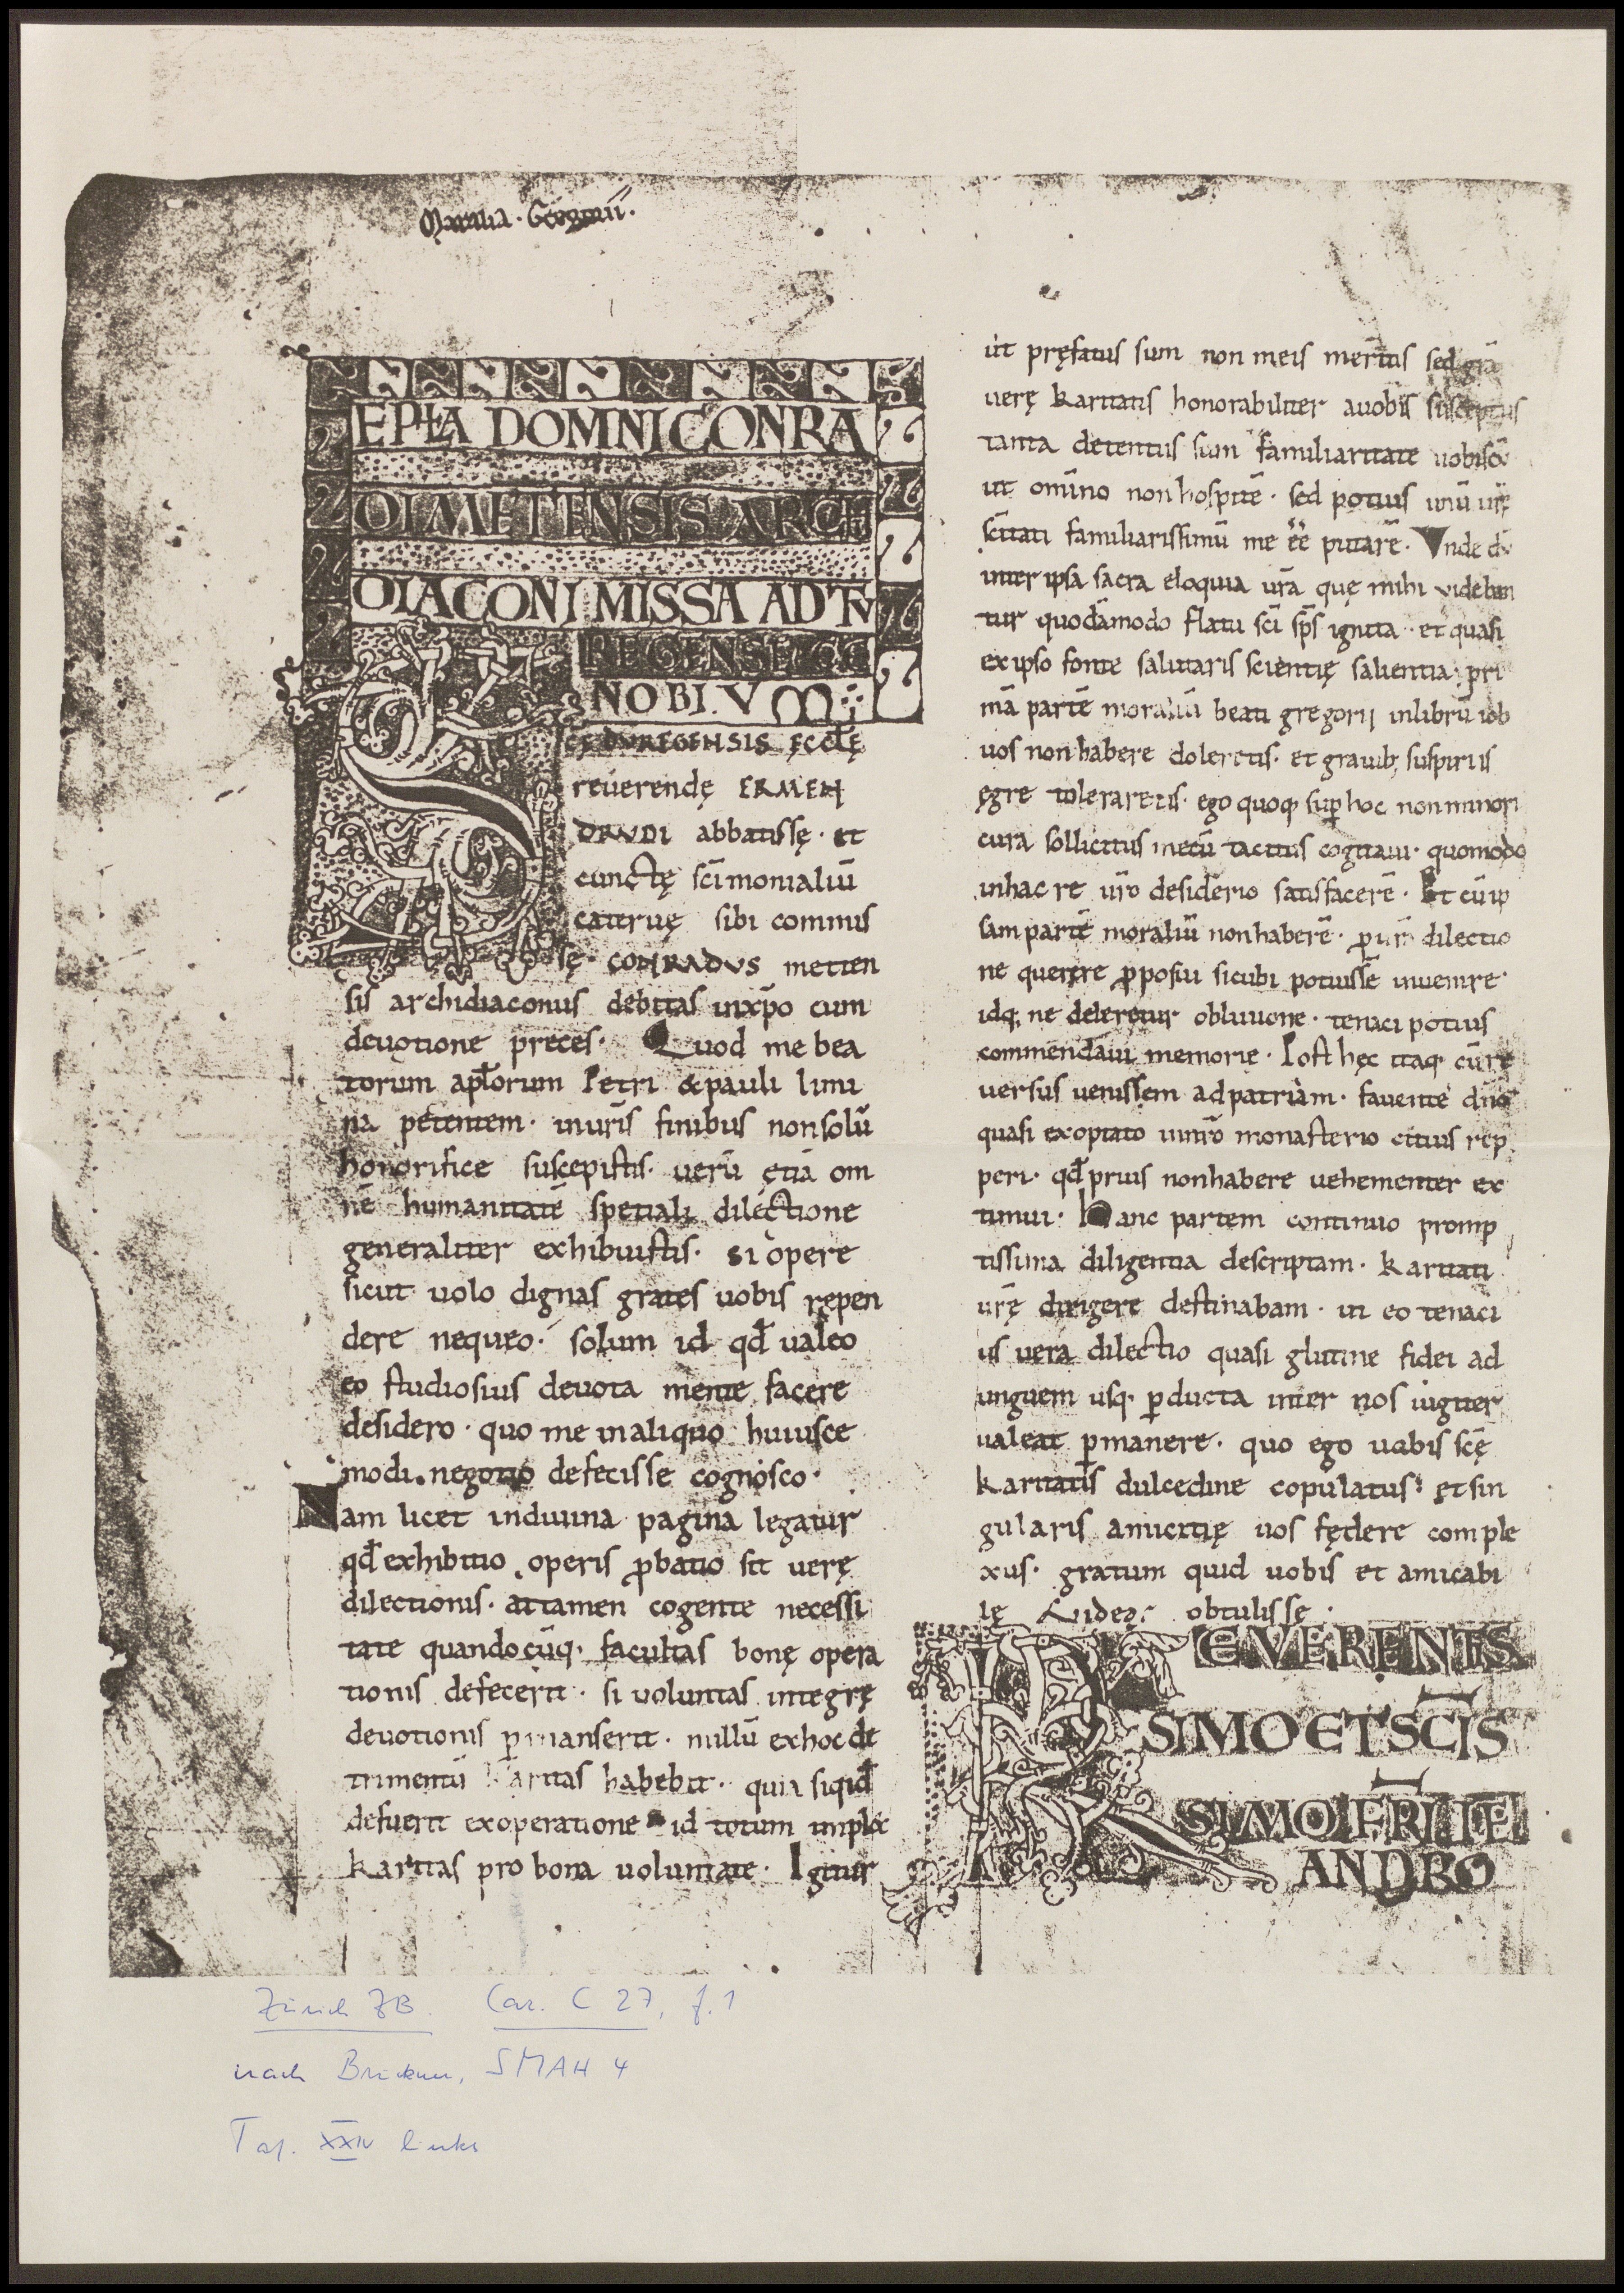 Moralia · Gregorii ·
EPŁA DOMNI CONRA
DI METENSIS ARCHI
DIACONI MISSA AD TV
REGENSE CE
NOBIVM
SCĘ DVREGENSIS ĘCCŁĘ
reuerendę ERMEN
DRVDI abbatissę · et
cunctę sc̄imonialiū
cateruę sibi commis
sę · CONRADVS metten
sis archidiaconus debitas inxp̄o cum
deuotione preces · Quod me bea
torum apłorum Petri & pauli limi
na petentem · inur̄is finibus nonsolū
honorifice suscepistis · uerū ętiā om
nē humanitatē spetiali dilectione
generaliter exhibuistis · si opere
sicut uolo dignas grates uobis rępen
dere nequeo · solum id qđ ualeo
eo studiosius deuota mente facere
desidero · quo me inaliquo huiusce
modi negotio defecisse cognosco ·
Nam licet indiuina pagina legatur
qđ exhibitio operis ꝓbatio sit uerę
dilectionis · attamen cogente necessi
tate quandocūq· facultas bonę opera
tionis defecerit · si uoluntas integrę
deuotionis ꝑmanserit · nullū exhoc de
trimentū karitas habebit · quia siqid
defuerit exoperatione id totum implet
karitas pro bona uoluntate · Igitur
ut pręfatus sum non meis meritis sed grā
uerę karitatis honorabiliter auobis susceptus
tanta detentus sum familiaritate uobiscū
ut omīno nonhospitē · sed potius unū ur̄ę
sc̄itati familiarissimū me ēē putarē · Vnde cū
inter ipsa sacra eloquia ur̄a quę mihi videban
tur quodāmodo flatu sc̄i sp̄s ignita · et quasi
exipso fonte salutaris scientię salientia pri
mā partē moraliū beati gregorij inlibrū iob
uos nonhabere doleretis · et grauib; suspiriis
ęgre toleraretis · ego quoq· suꝑ hoc nonminori
cura sollicitus mecū tacitus cogitaui · quomodo
inhac re ur̄o desiderio satisfacerē · Et cū ip
sam partē moraliū nonhaberē · ꝓ ur̄a dilectio
ne querere ꝓposui sicubi potuissē inuenire ·
idq; ne deleretur obliuione · tenaci potius
commendaui memorie · Post hęc itaq· cū re
versus uenissem adpatriam · fauente dn̄o
quasi exoptato innr̄o monasterio citius rep
peri · qđ prius nonhabere uehementer ex
timui · Hanc partem continuo promp
tissima diligentia descriptam · karitati
ur̄ę dirigere destinabam · in eo tenaci
us uera dilectio quasi glutine fidei ad
unguem usq· ꝑducta inter nos iugiter
ualeat ꝑmanere · quo ego uobis sc̄ę
karitatis dulcedine copulatus · et sin
gularis amicitię uos fędere comple
xus · gratum quid uobis et amicabi
lę uidear obtulisse ·
REVERENTIS
SIMO ET SC̄IS
SIMO FRI LE
ANDRO
Zürich ZB. Car. C 27, f. 1
nach Bruckner, SMAH 4
Taf. XXIV links